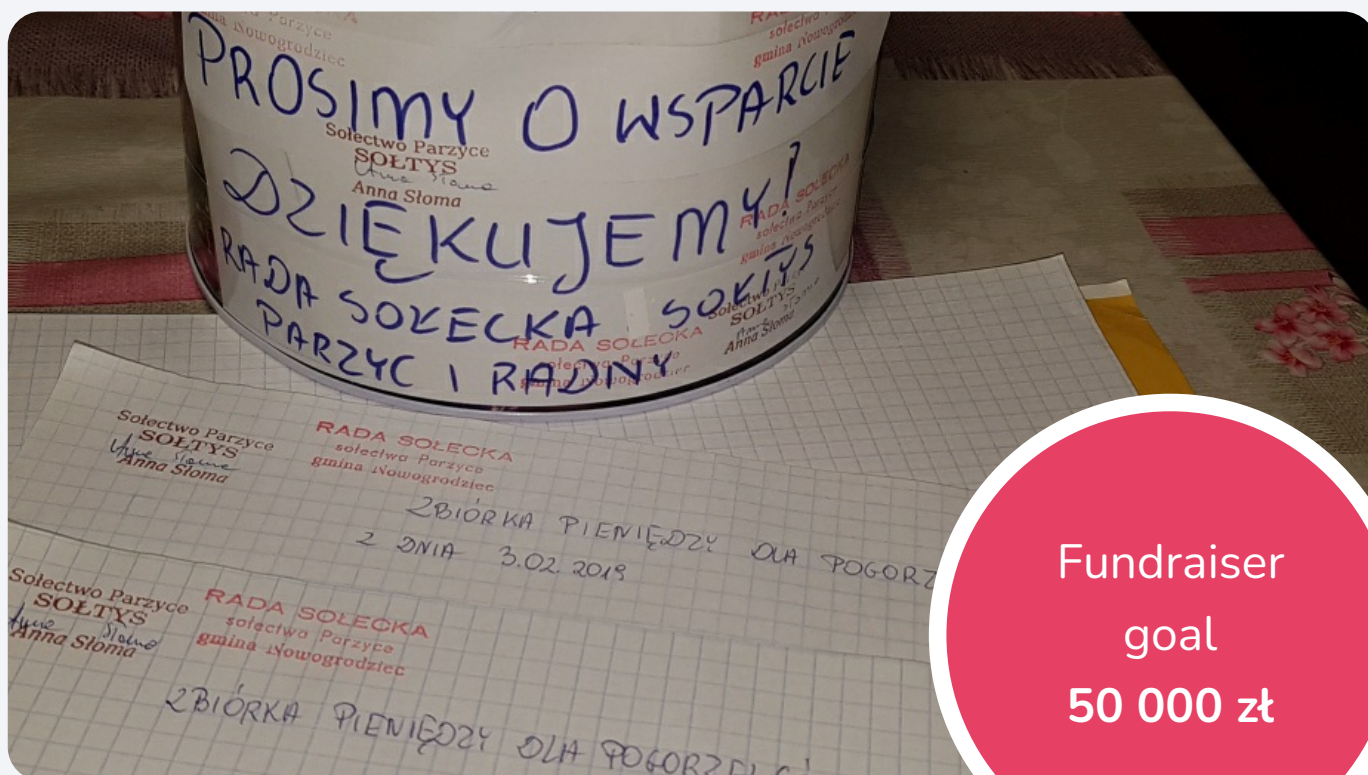 Parzyce
Nowogrodziec
RADA SOŁECKA
sołectwo
gmina Nowogrodziec
PROSIMY O WSPARCIE
Sołectwo Parzyce
SOŁTYS
Anna Słoma
DZIĘKUJEMY!
RADA SOŁECKA
sołectwo Parzyce
gmina Nowogrodziec
RADA SOŁECKA SOŁTYS
PARZYC I RADNY
Sołectwo
SOŁTYS
Anna Słoma
RADA SOŁECKA
sołectwo Parzyce
gmina Nowogrodziec
Sołectwo Parzyce
SOŁTYS
Anna Słoma
RADA SOŁECKA
sołectwo Parzyce
gmina Nowogrodziec
ZBIÓRKA PIENIĘDZY DLA
Z DNIA 3.02.2019
Sołectwo Parzyce
SOŁTYS
Anna Słoma
RADA SOŁECKA
sołectwo Parzyce
gmina Nowogrodziec
ZBIÓRKA PIENIĘDZY DLA
Fundraiser
goal
50 000 zł